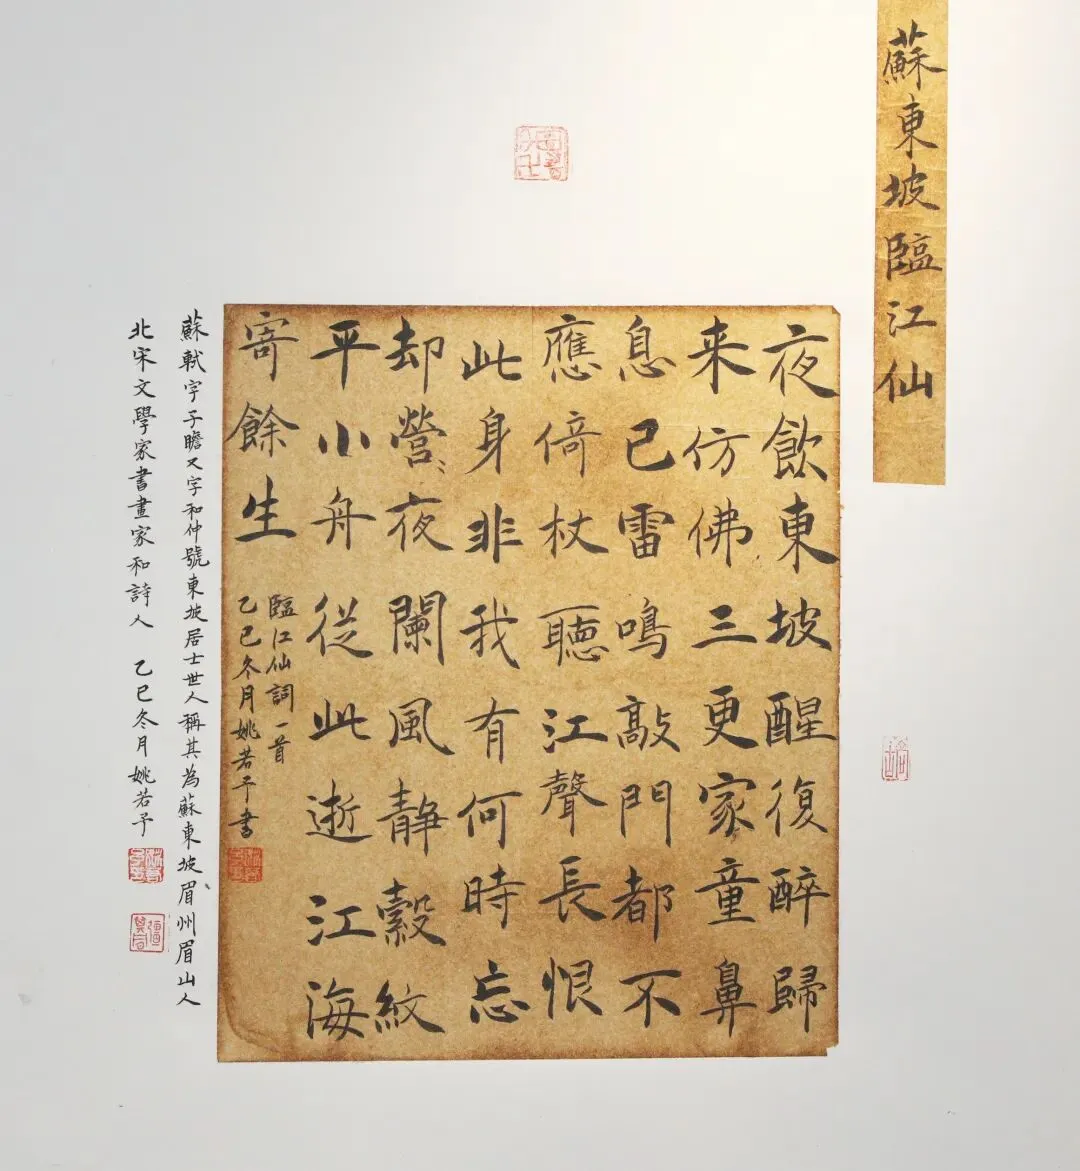 蘇東坡臨江仙
夜飲東坡醒復醉歸
来仿佛三更家童鼻
息已雷鳴敲門都不
應倚杖聽江聲長恨
此身非我有何時忘
却營〻夜闌風静縠紋
平小舟從此逝江海
寄餘生
臨江仙詞一首
乙巳冬月姚若予書
蘇軾字子瞻又字和仲號東坡居士世人稱其為蘇東坡眉州眉山人
北宋文學家書畫家和詩人 乙巳冬月姚若予